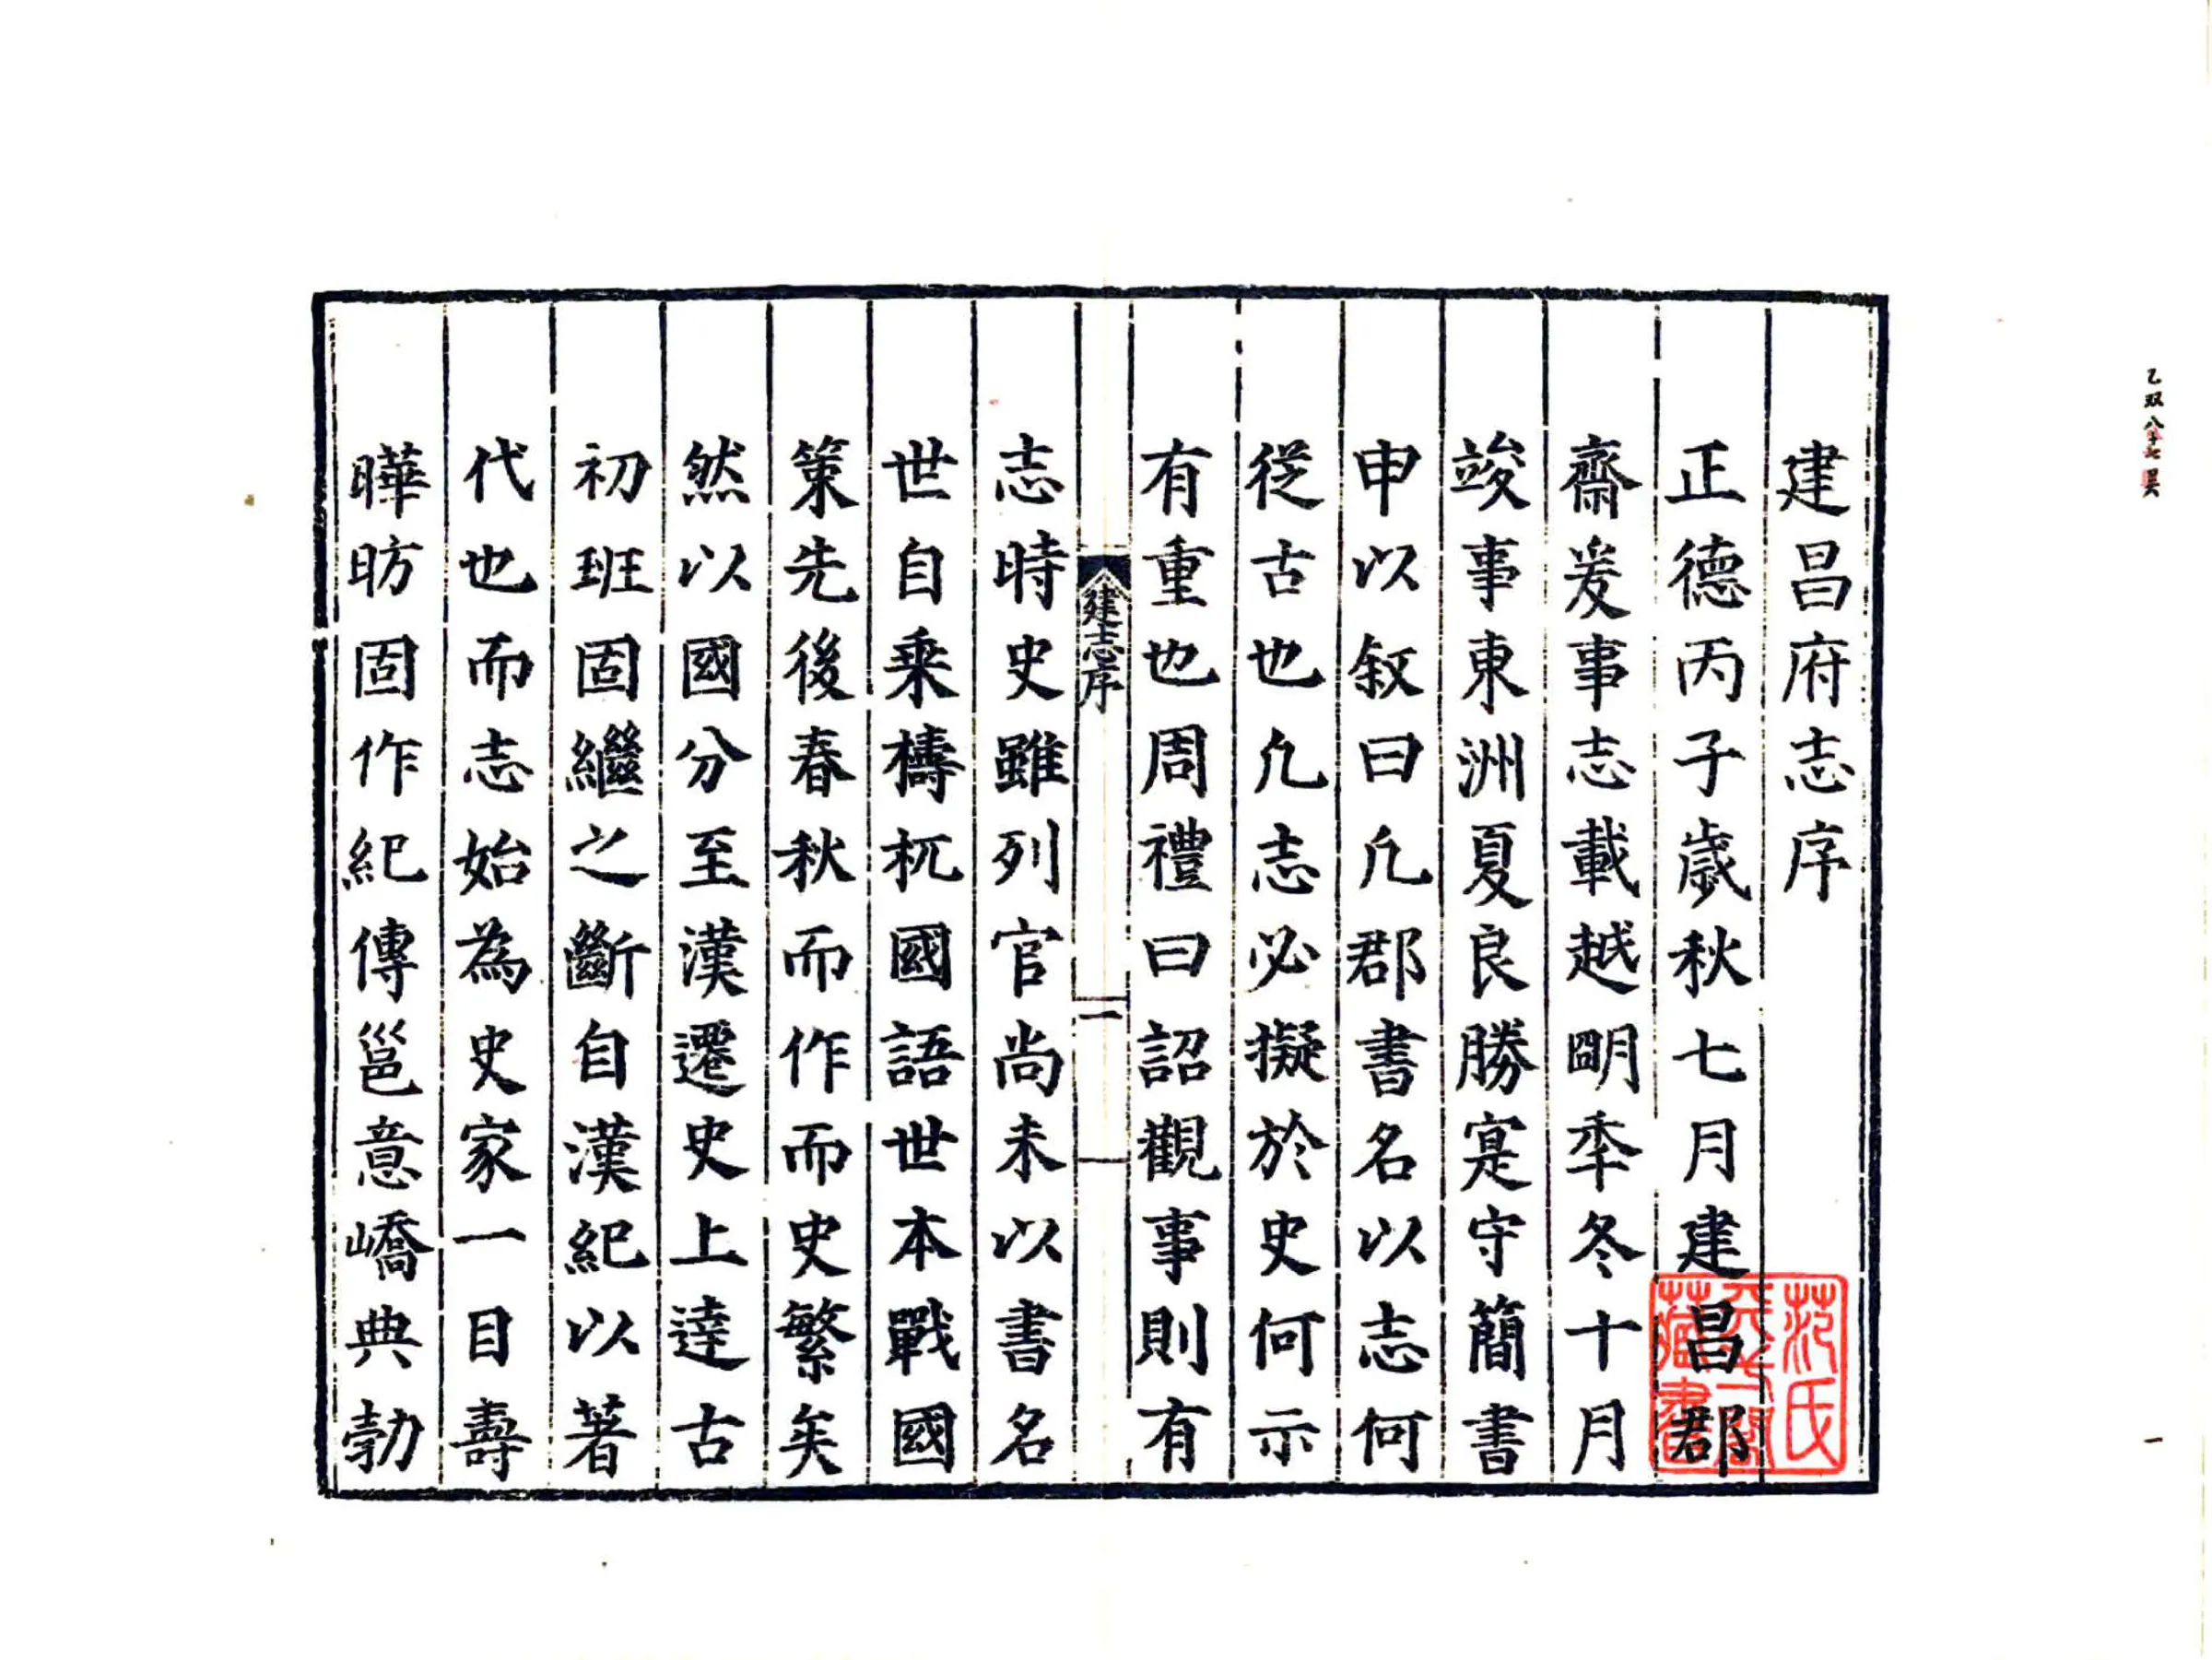 建昌府志序
正德丙子歲秋七月建昌郡
齋爰事志載越明秊冬十月
竣事東洲夏良勝寔守簡書
申以叙曰凢郡書名以志何
從古也凢志必擬於史何示
有重也周禮曰詔觀事則有
建志序
一
志時史雖列官尚未以書名
世自乘檮杌國語世本戰國
策先後春秋而作而史繁矣
然以國分至漢遷史上逹古
初班固繼之斷自漢紀以著
代也而志始為史家一目壽
曄昉固作紀傳邕意嶠典勃
范氏
天一閣
藏書
一